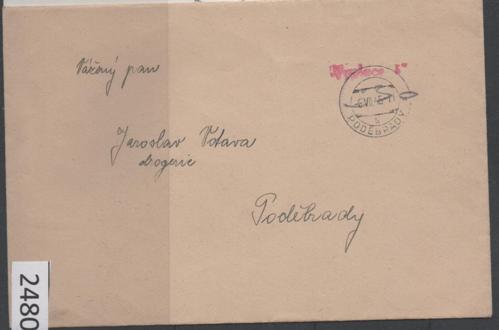 Vážený pan
Jaroslav Votava
drogerie
Poděbrady
PODĚBRADY
2480